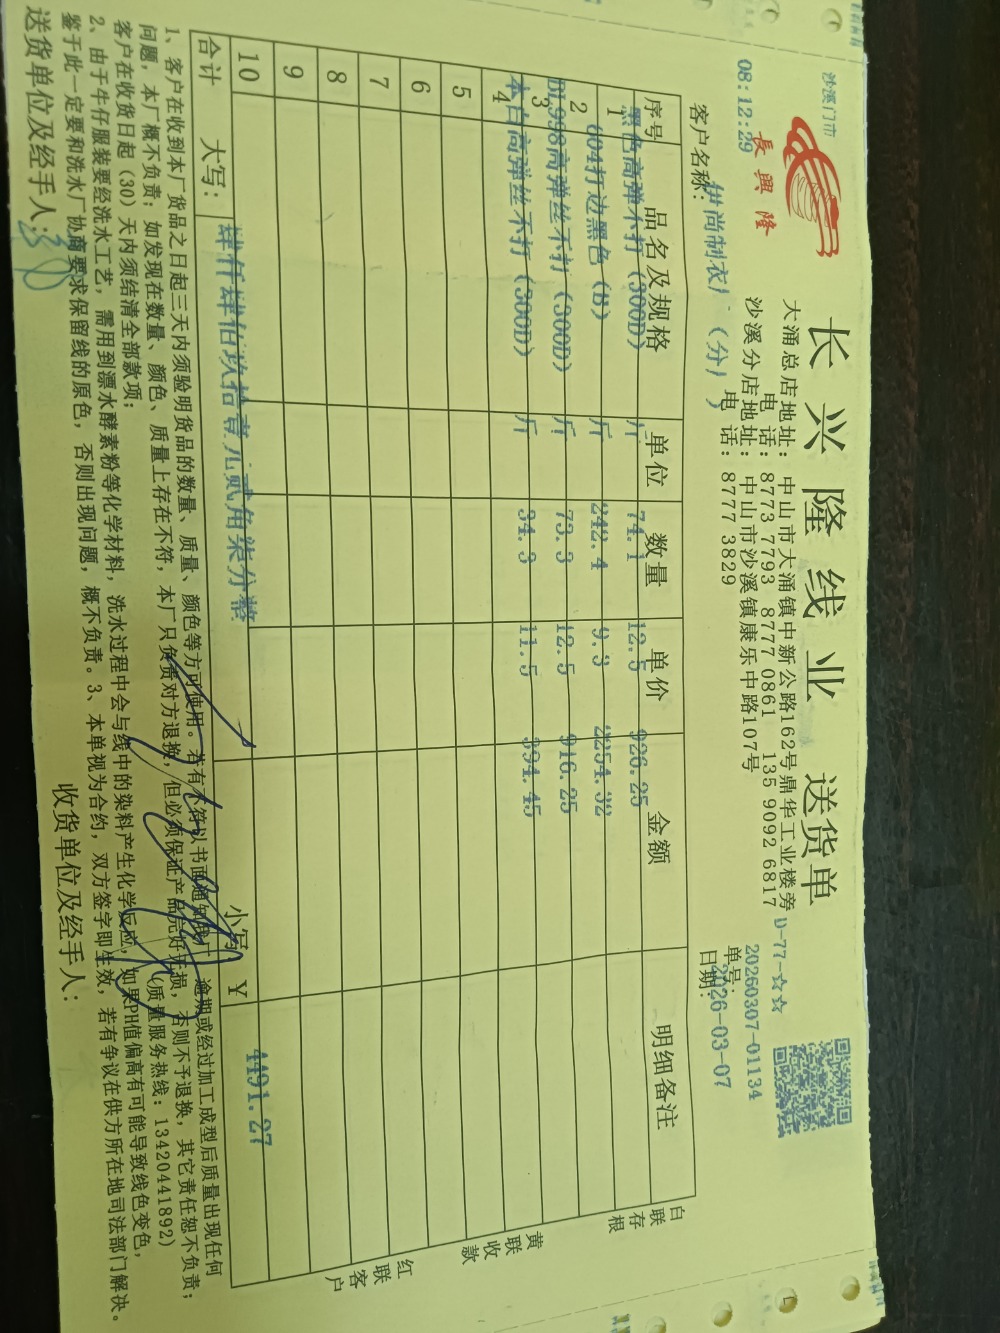 沙溪门市
08:12:29
長興隆
长兴隆线业 送货单
大涌总店地址: 中山市大涌镇中新公路162号鼎华工业楼旁
电 话: 8773 7793 8777 0861 135 9092 6817
沙溪分店地址: 中山市沙溪镇康乐中路107号
电 话: 8777 3829
D-77-☆☆
单号: 20260307-01134
日期: 2026-03-07
客户名称: 伊尚制衣厂(分)
序号 品名及规格 单位 数量 单价 金额 明细备注
1 黑色高弹不打(300D) 斤 74.1 12.5 926.25
2 604打边黑色(B) 斤 242.4 9.3 2254.32
3 DL998高弹丝不打(300D) 斤 73.3 12.5 916.25
4 本白高弹丝不打(300D) 斤 34.3 11.5 394.45
5
6
7
8
9
10
合计 大写: 肆仟肆佰玖拾壹元贰角柒分整 小写 Y 4491.27
白联存根
黄联收款
红联客户
1、客户在收到本厂货品之日起三天内须验明货品的数量、质量、颜色等方可使用。若有不符以书面通知我厂, 逾期或经过加工成型后质量出现任何
问题, 本厂概不负责; 如发现在数量、颜色、质量上存在不符, 本厂只负责对方退换, 但必须保证产品完好无损, 否则不予退换, 其它责任恕不负责;
客户在收货日起 (30) 天内须结清全部款项; (质量服务热线: 13420441892)
2、由于牛仔服装要经洗水工艺, 需用到漂水酵素粉等化学材料, 洗水过程中会与线中的染料产生化学反应, 如果PH值偏高有可能导致线色变色,
鉴于此一定要和洗水厂协商要求保留线的原色, 否则出现问题, 概不负责。3、本单视为合约, 双方签字即生效, 若有争议在供方所在地司法部门解决。
送货单位及经手人: 收货单位及经手人: